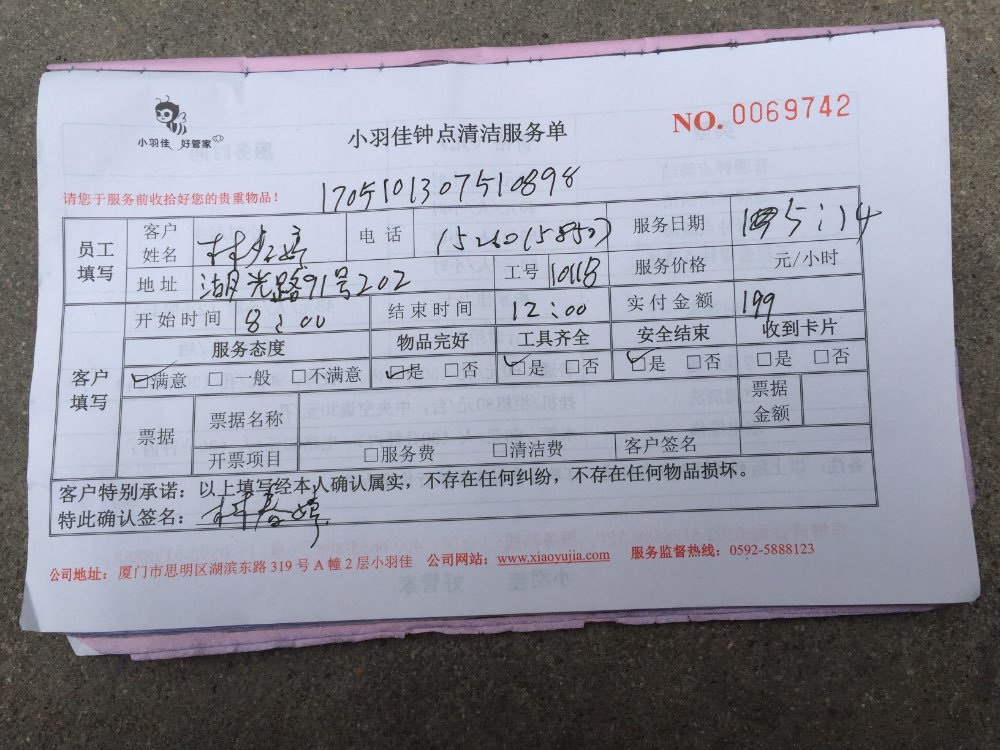 小羽佳 好管家
小羽佳钟点清洁服务单
NO. 0069742
请您于服务前收拾好您的贵重物品！
1705101307510898
员工填写 客户姓名 电话 服务日期 5:14
地址 湖光路91号202 工号 10118 服务价格 元/小时
开始时间 8:00 结束时间 12:00 实付金额 199
客户填写 服务态度 物品完好 工具齐全 安全结束 收到卡片
□满意 □一般 □不满意 □是 □否 □是 □否 □是 □否 □是 □否
票据 票据名称 票据金额
开票项目 □服务费 □清洁费 客户签名
客户特别承诺：以上填写经本人确认属实，不存在任何纠纷，不存在任何物品损坏。
特此确认签名：林春婷
公司地址：厦门市思明区湖滨东路 319 号 A 幢 2 层小羽佳 公司网站：www.xiaoyujia.com 服务监督热线：0592-5888123